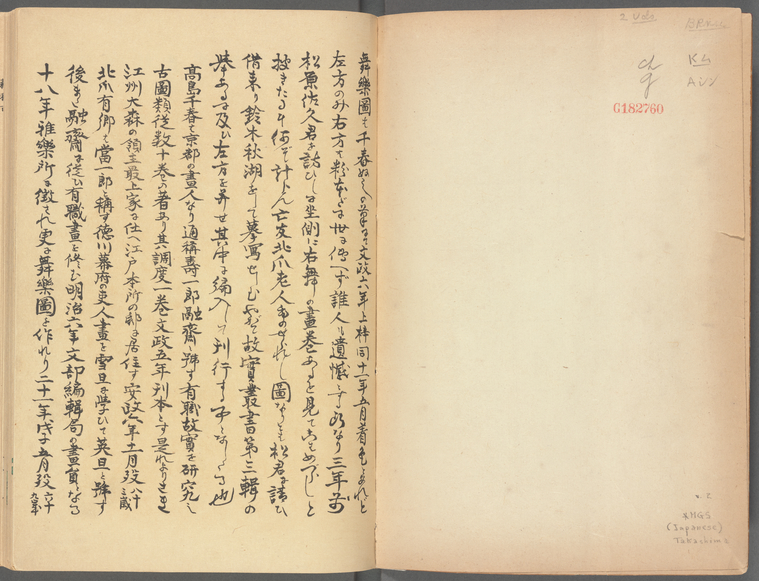 舞樂圖は千春ぬしの筆にて文政六年上梓同十一年五月着色とあれと
左方のみ右方は粉本だに世に傳へず誰人も遺憾とする所なり三年前
松原佐久君を訪ひしに坐側に右舞の畫卷あるを見て
披きたるに何ぞ計らん亡友北爪老人の圖なりとは松君に請ひ
借來り鈴木秋湖をして摹寫せしむ故實叢書第三輯の
擧あるに及び左方と并せ其中に編入して刊行する事となしたる也
高島千春は京都の畫人なり通稱壽一郎融齋と號す有職故實を研究し
古圖類從數十卷の著あり其調度一卷文政五年刊本とす是れよりさき
江州大森の領主最上家に仕へ江戸本所の邸に居住す安政六年十一月歿八十三歳
北爪有郷は當一郎と稱す德川幕府の吏人畫を雪旦に學ひて英旦と號す
後また融齋に從ひ有職畫を修む明治六年文部編輯局の畫員となる
十八年雅樂所に徴され更に舞樂圖を作れり二十一年戊子五月歿六十九
2 vols
G182760
*HGS
(Japanese)
Takashima